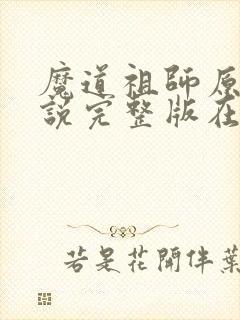 魔道祖師原
說完整版在
若是花開伴葉